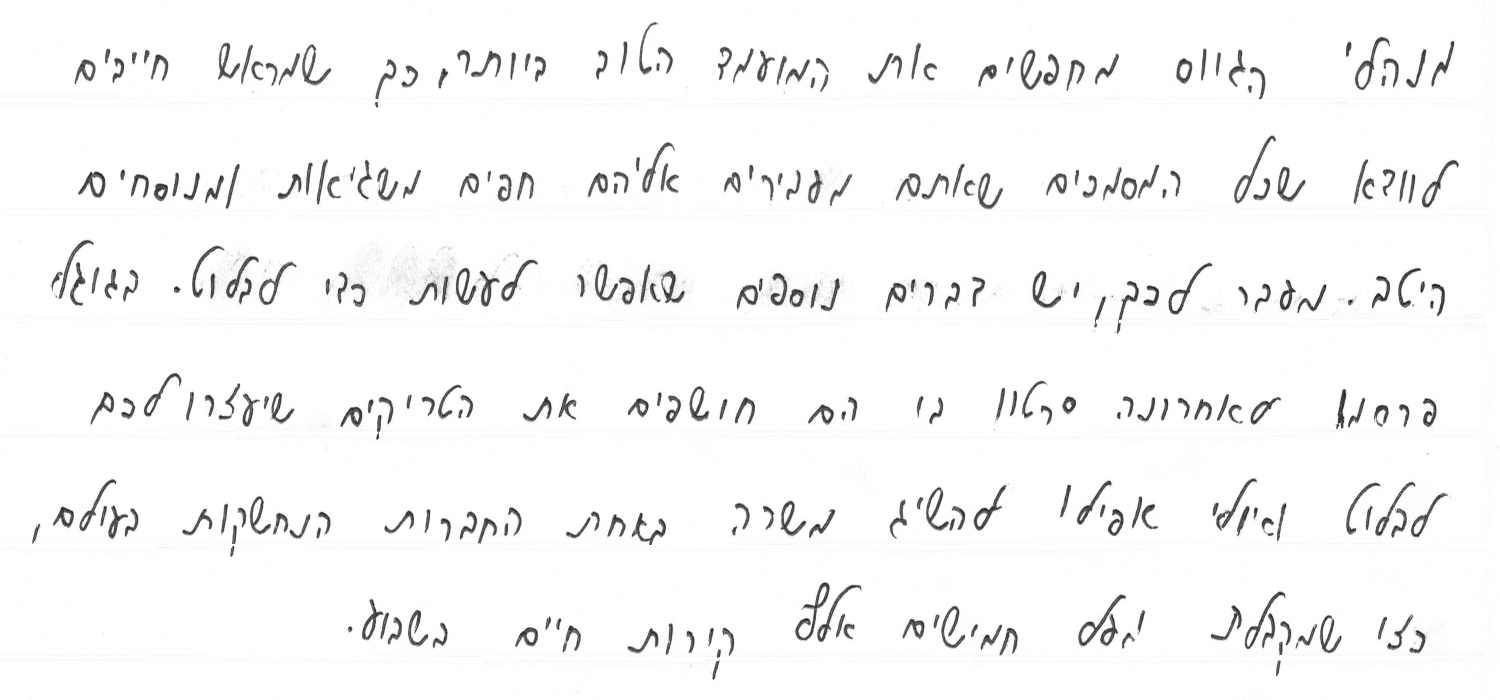 מנהלי הגיוס מחפשים את המועמד הטוב ביותר, כך שמראש חייבים
לוודא שכל המסמכים שאתם מעבירים אליהם חפים משגיאות ומנוסחים
היטב. מעבר לכך, יש דברים נוספים שאפשר לעשות כדי לבלוט. בגוגל
פרסמו לאחרונה סרטון בו הם חושפים את הטריקים שיעזרו לכם
לבלוט ואולי אפילו להשיג משרה באחת החברות הנחשקות בעולם,
כזו שמקבלת מעל חמישים אלף קורות חיים בשבוע.